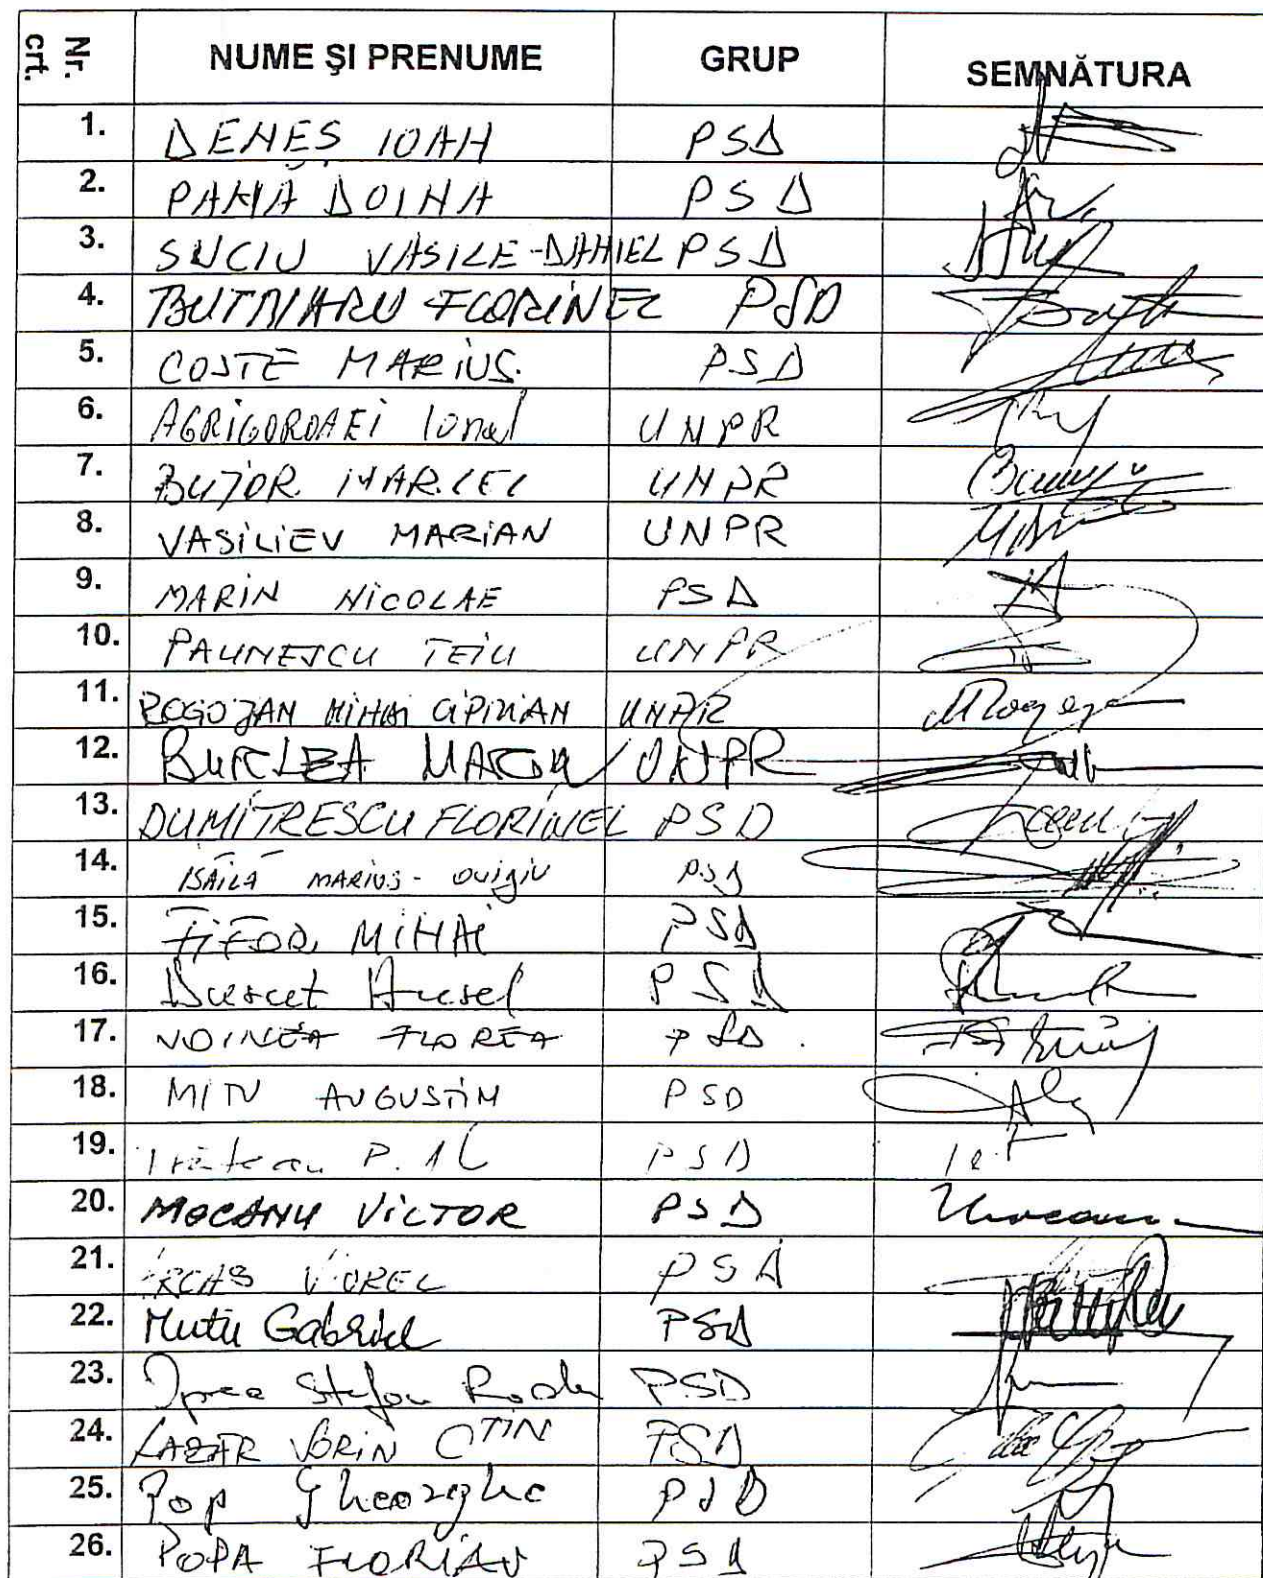 Nr. crt. NUME ŞI PRENUME GRUP SEMNĂTURA
1. DENEŞ IOAN PSD
2. PANĂ DOINA PSD
3. SUCIU VASILE-DANIEL PSD
4. BUTNARU FLORINEL PSD
5. COSTE MARIUS. PSD
6. AGRIGOROAEI Ionel UNPR
7. BUJOR MARCEL UNPR
8. VASILIEV MARIAN UNPR
9. MARIN NICOLAE PSD
10. PAUNESCU TEIU UNPR
11. ROGOJAN MIHAI CIPRIAN UNPR
12. BURLEA MARIN UNPR
13. DUMITRESCU FLORINEL PSD
14. ISĂILĂ MARIUS-OVIDIU PSD
15. FIFOR MIHAI PSD
16. PSD
17. VOINEA FLOREA PSD.
18. MITU AUGUSTIN PSD
19. P. Al PSD
20. MOCANU VICTOR PSD
21. ARCAŞ VIOREL PSD
22. Mutu Gabriel PSD
23. Oprea Stefan Radu PSD
24. LAZĂR SORIN CTIN PSD
25. Pop Gheorghe PSD
26. POPA FLORIAN PSD